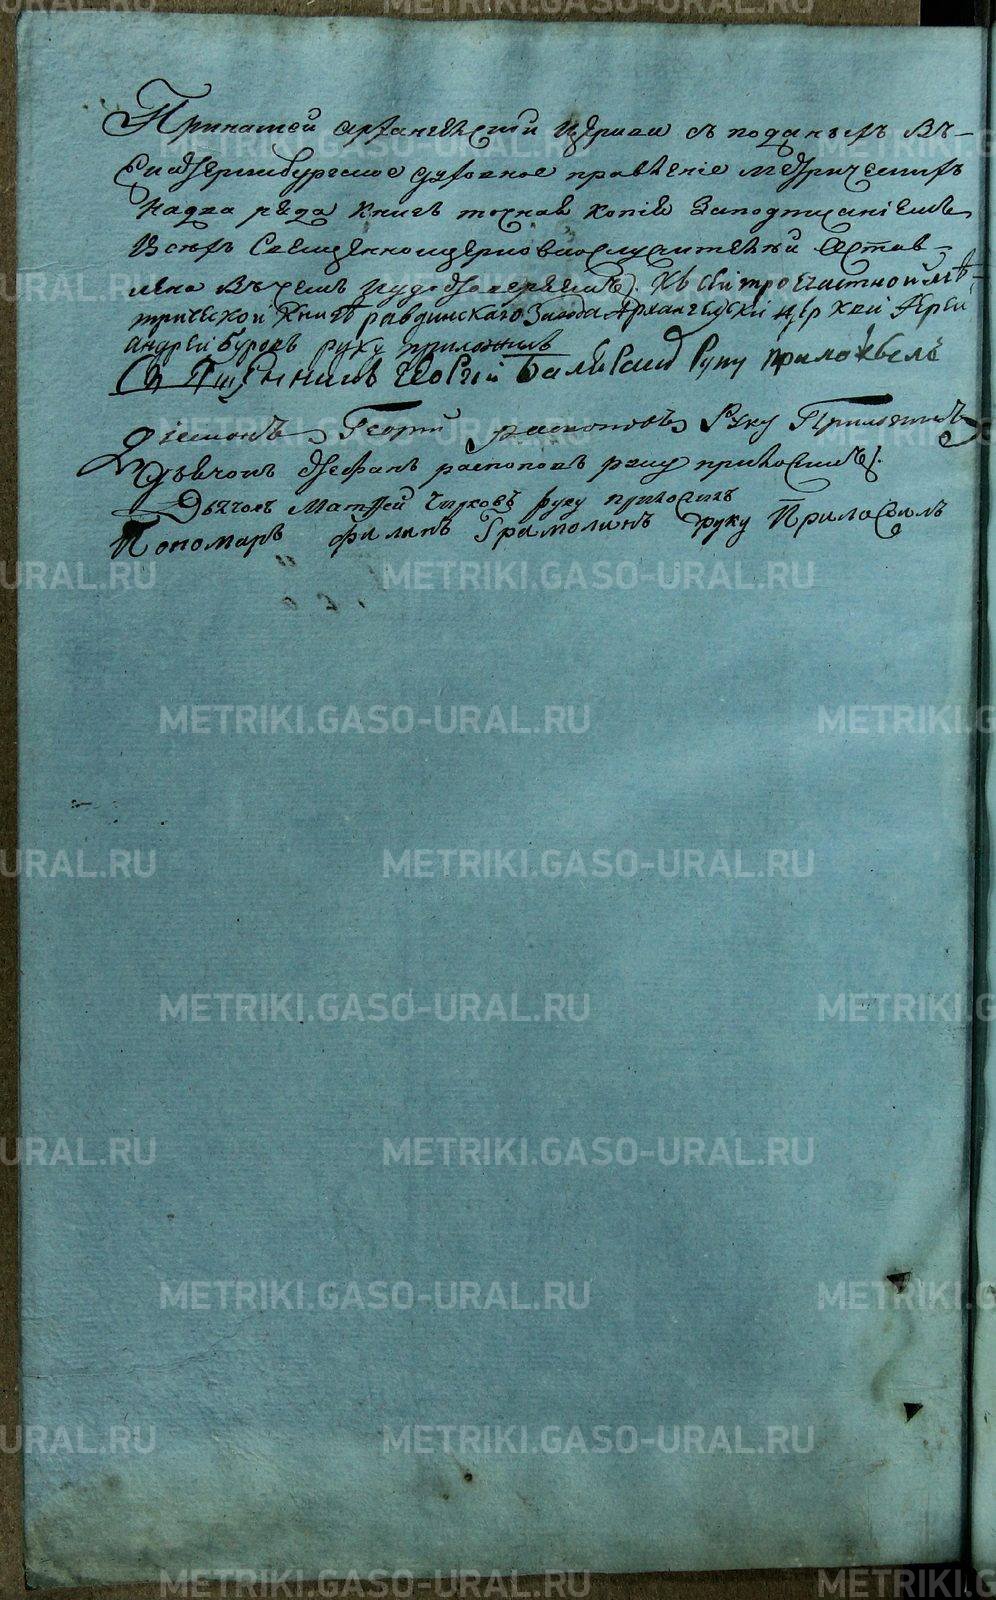 При нашей архангелской церкви съ поданыхъ въ-
Екатеринбургское духовное правление метрическихъ
книгъ точная копия за подписаниемъ
всехъ Священноцерковнослужителей остав-
лена въ чемъ и удостоверяемъ. Къ сей троечастной ме-
трической книге ревдинскаго завода Архангелской церкви Иерей
андрей буровъ руку приложилъ
Священникъ Георгий руку приложилъ
Диаконъ Георгий распоповъ Руку Приложилъ
Дьячокъ Стефанъ распоповъ руку приложилъ.
Дьячокъ Матфей руку приложилъ
Пономарь филипъ Грамолинъ руку Приложилъ
METRIKI.GASO-URAL.RU